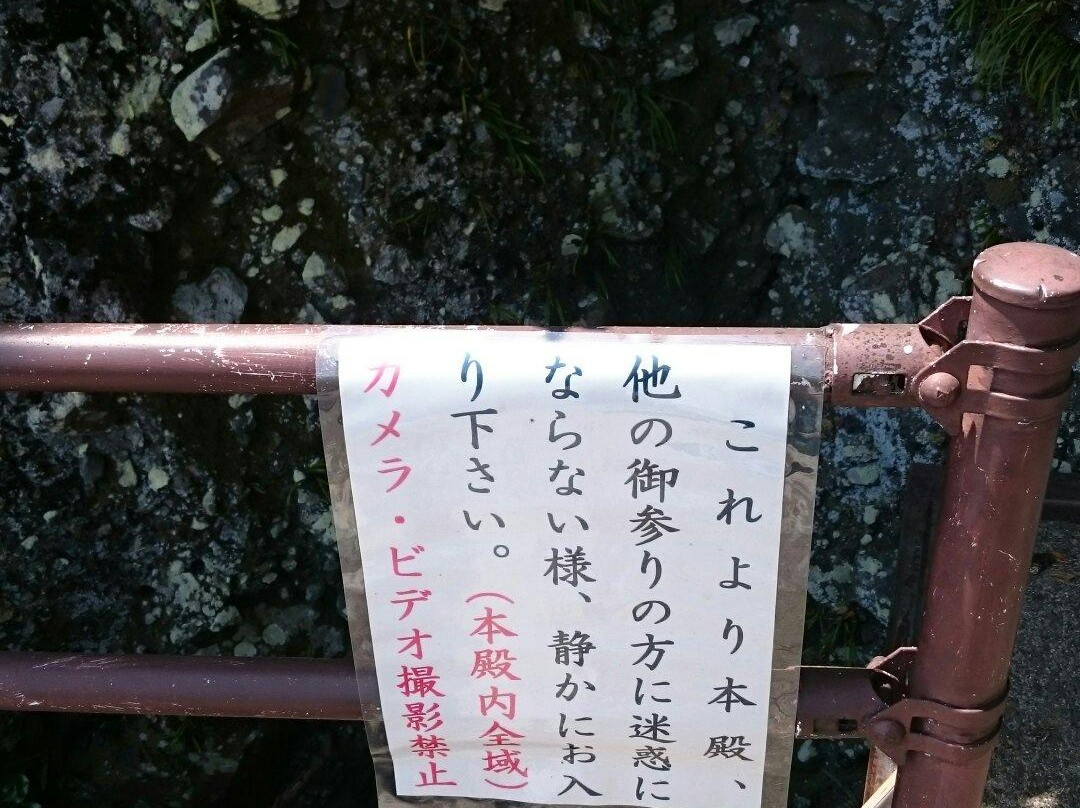 これより本殿、
他の御参りの方に迷惑に
ならない様、静かにお入
り下さい。(本殿内全域)
カメラ・ビデオ撮影禁止